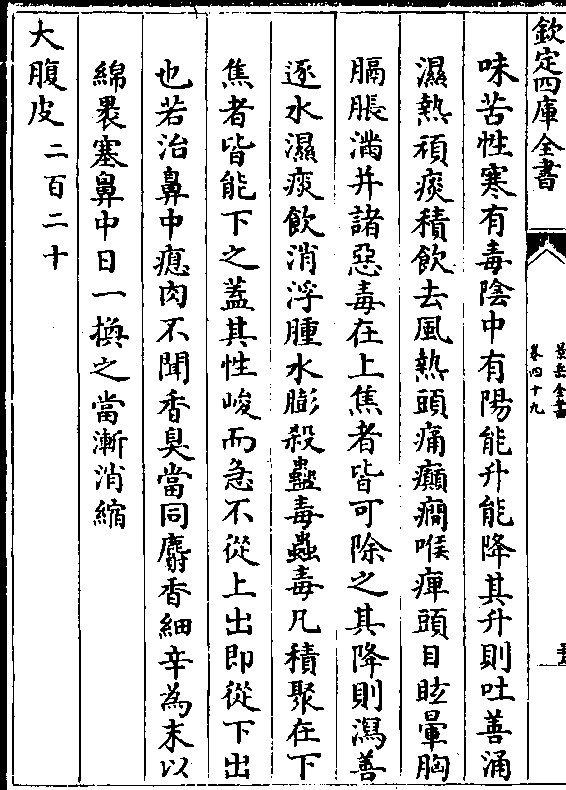 欽定四庫全書
景岳全書
卷四十九
味苦性寒有毒陰中有陽能升能降其升則吐善涌
濕熱頑痰積飲去風熱頭痛癲癇喉痺頭目眩暈胸
膈脹滿并諸惡毒在上焦者皆可除之其降則瀉善
逐水濕痰飲消浮腫水膨殺蠱毒蟲毒凡積聚在下
焦者皆能下之蓋其性峻而急不從上出即從下出
也若治鼻中瘜肉不聞香臭當同麝香細辛為末以
綿褁塞鼻中日一換之當漸消縮
大腹皮二百二十